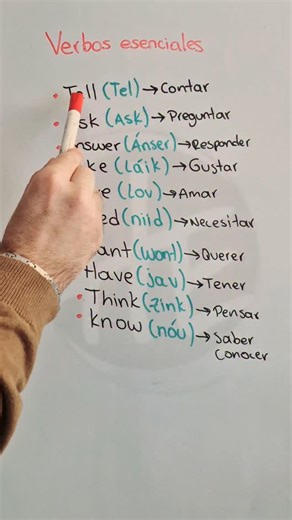 Verbos esenciales
Tell (Tel) → Contar
Ask (Ask) → Preguntar
Answer (Ánser) → Responder
(láik) → Gustar
(lov) → Amar
(niid) → Necesitar
(wont) → Querer
Have (jav) → Tener
Think (zink) → Pensar
know (nóu) → Saber
Conocer